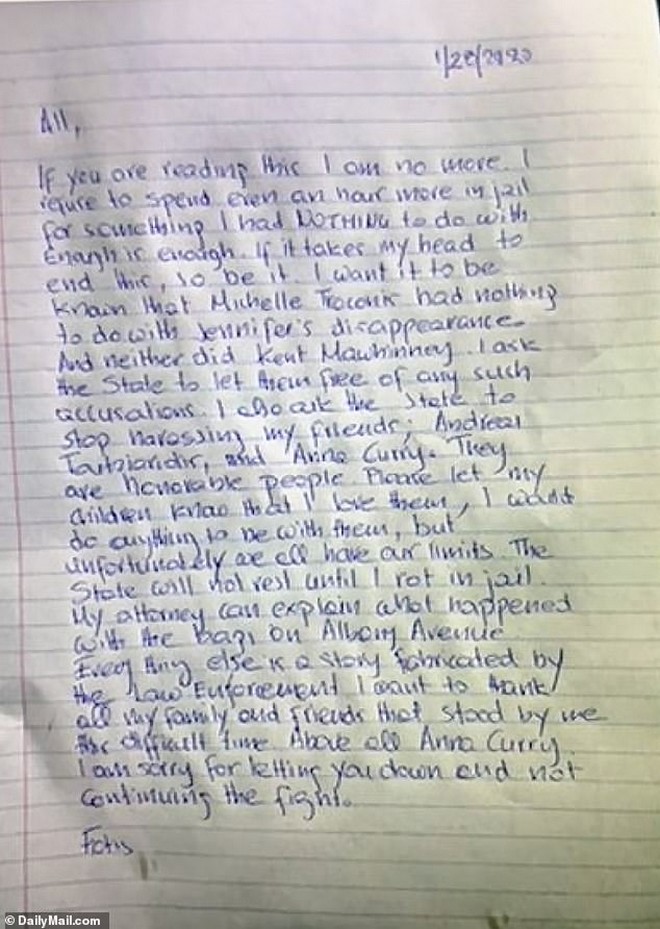 1/28/2020
All,
If you are reading this I am no more. I
refuse to spend even an hour more in jail
for something I had NOTHING to do with
Enough is enough. If it takes my head to
end this, so be it. I want it to be
known that Michelle Troconis had nothing
to do with Jennifer's disappearance.
And neither did Kent Mawhinney. I ask
the State to let them free of any such
accusations. I also ask the State to
stop harassing my friends; Andreas
and Anna Curry. They
are honorable people. Please let my
children know that I love them, I would
do anything to be with them, but
unfortunately we all have our limits. The
State will not rest until I rot in jail.
My attorney can explain what happened
with the bags on Albany Avenue
Every thing else is a story fabricated by
the Law Enforcement I want to thank
all my family and friends that stood by me
this difficult time Above all Anna Curry.
I am sorry for letting you down and not
continuing the fight.
Fotis
© DailyMail.com